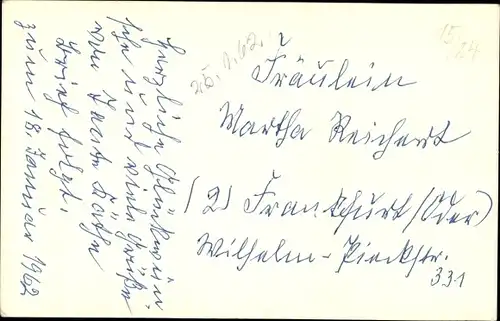 Herzliche Glückwün
sche und viele Grüße
von Tante Käthe
Brief folgt.
zum 18. Januar 1962
25.1.62.
15/24
Fräulein
Martha Reichert
(2) Frankfurt/Oder)
Wilhelm-Pieckstr.
331